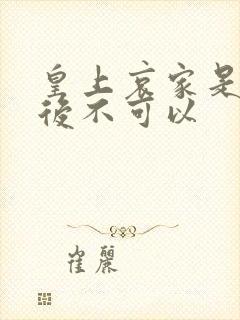 皇上哀家是
後不可以
崔麗